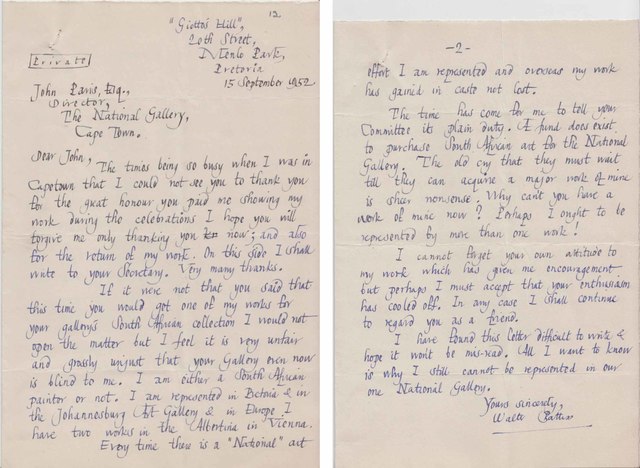 12
"Giotto's Hill",
20th Street,
Menlo Park,
Pretoria
15 September 1952
Private
John Paris, Esq.,
Director,
The National Gallery,
Cape Town.
Dear John,
The times being so busy when I was in
Capetown that I could not see you to thank you
for the great honour you paid me showing my
work during the celebrations I hope you will
forgive me only thanking you now; and also
for the return of my work. On this side I shall
write to your Secretary. Very many thanks.
If it were not that you said that
this time you would got one of my works for
your gallery's South African collection I would not
open the matter but I feel it is very unfair
and grossly unjust that your Gallery even now
is blind to me. I am either a South African
painter or not. I am represented in Pretoria & in
the Johannesburg Art Gallery & in Europe I
have two works in the Albertina in Vienna.
Every time there is a "National" art
-2-
effort I am represented and overseas my work
has gained in caste not lost.
The time has come for me to tell your
Committee its plain duty. A fund does exist
to purchase South African art for the National
Gallery. The old cry that they must wait
till they can acquire a major work of mine
is sheer nonsense. Why can't you have a
work of mine now? Perhaps I ought to be
represented by more than one work!
I cannot forget your own attitude to
my work which has given me encouragement
but perhaps I must accept that your enthusiasm
has cooled off. In any case I shall continue
to regard you as a friend.
I have found this letter difficult to write &
hope it won't be mis-read. All I want to know
is why I still cannot be represented in our
one National Gallery.
Yours sincerely,
Walter Battiss